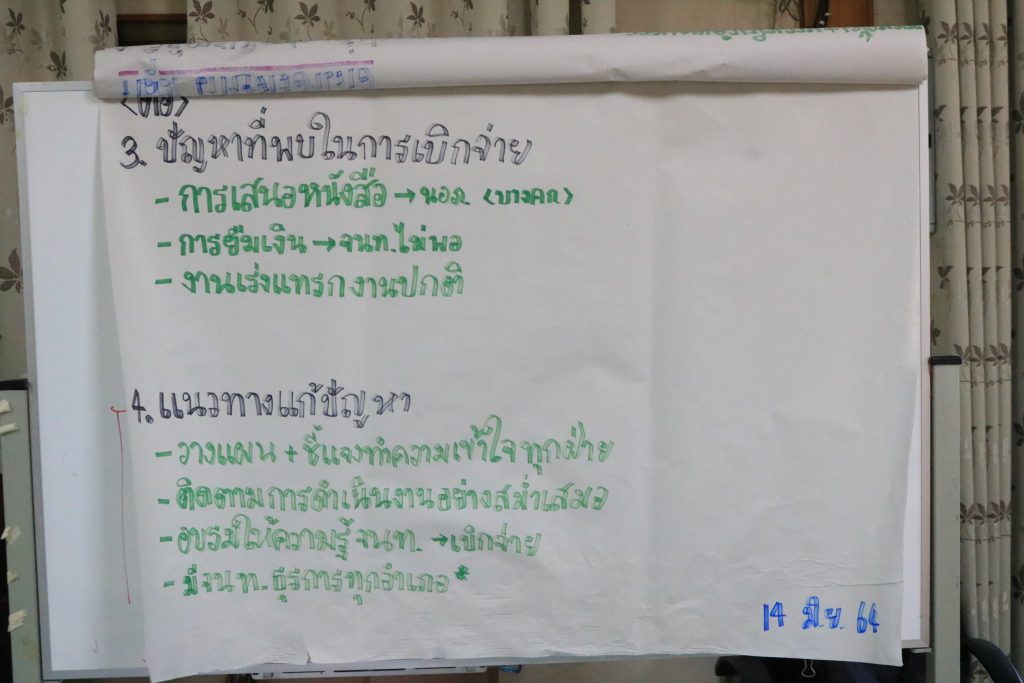 <ต่อ>
3. ปัญหาที่พบในการเบิกจ่าย
- การเสนอหนังสือ → นอภ. <บางคน>
- การยืมเงิน → จนท.ไม่พอ
- งานเร่งแทรกงานปกติ
4. แนวทางแก้ปัญหา
- วางแผน + ชี้แจงทำความเข้าใจทุกฝ่าย
- ติดตามการดำเนินงานอย่างสม่ำเสมอ
- อบรมให้ความรู้ จนท. → เบิกจ่าย
- มีจนท.ธุรการทุกอำเภอ*
14 มิ.ย. 64